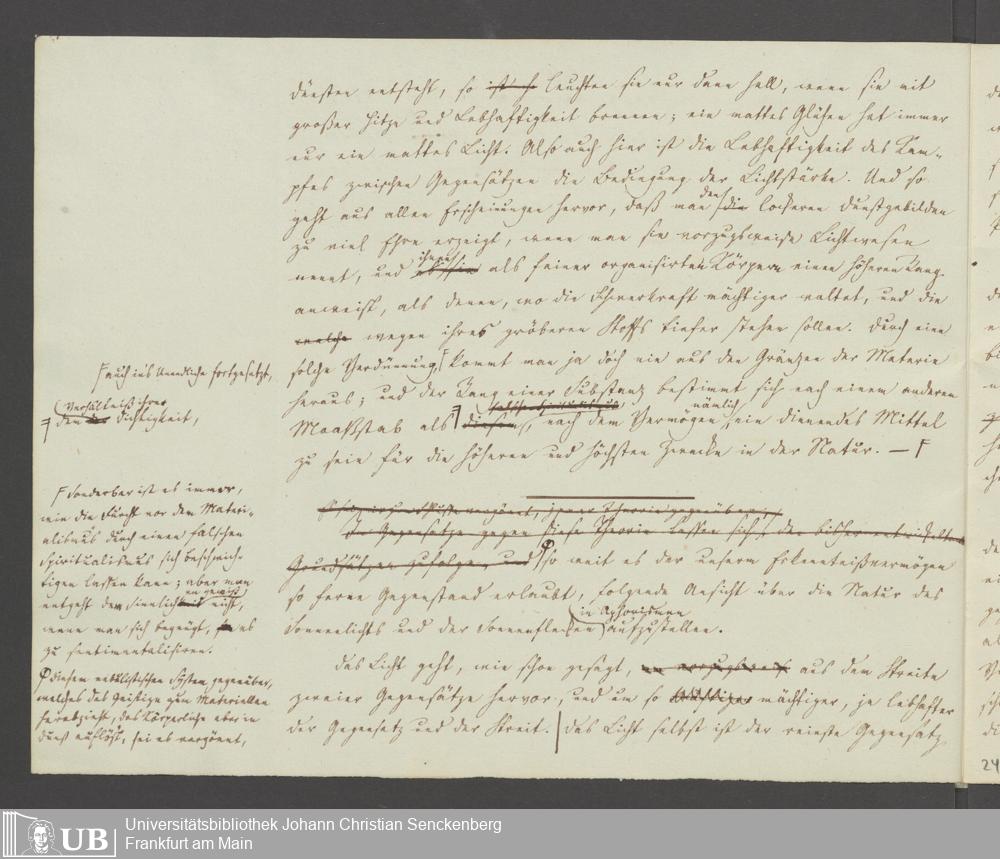 dünsten entsteht, so ist es leuchten sie nur dann hell, wenn sie mit
großer Hitze und Lebhaftigkeit brennen; ein mattes Glühen hat immer
nur ein mattes Licht. Also auch hier ist die Lebhaftigkeit des Kam-
pfes zwischen Gegensätzen die Bedingung der Lichtstärke. Und so
geht aus allen Erscheinungen hervor, daß man den die lockeren Dunstgebilden
zu viel Ehre erzeigt, wenn man sie vorzugsweise Lichtwesen
nennt, und ihnen als feiner organisirten Körpern einen höheren Rang
anweist, als denen, wo die Schwerkraft mächtiger waltet, und die
welche wegen ihres gröberen Stoffs tiefer stehen sollen. Durch eine
solche Verdünnung, kommt man ja doch nie aus den Gränzen der Materie
heraus; und der Rang einer Substanz bestimmt sich nach einem anderen
Maaßstab als diesem, nach dem Vermögen nämlich, ein dienendes Mittel
zu sein für die höheren und höchsten Zwecke in der Natur. —
auch ins Unendliche fortgesetzt,
Verhältniß ihrer
den der Dichtigkeit,
Sonderbar ist es immer,
wie die Furcht vor dem Materi-
alismus durch einen falschen
Spiritualismus sich beschwich-
tigen lassen kann; aber man
entgeht dem Sinnlichen gewiß nicht,
wenn man sich begnügt, es
zu sentimentalisiren.
Diesem nebulistischen System gegenüber,
welches das Geistige zum Materiellen
herabzieht, das Körperliche aber in
Dunst auflöst, sei es vergönnt,
Im Gegensatze gegen diese Theorie lassen sich, den bisher entwickelten
Grundsätzen zufolge, und so weit es der unserm Erkenntnißvermögen
so ferne Gegenstand erlaubt, folgende Ansicht über die Natur des
Sonnenlichts und der Sonnenflecken in Aphorismen aufzustellen.
Das Licht geht, wie schon gesagt, aus dem Streite
zweier Gegensätze hervor, und um so mächtiger, je lebhafter
der Gegensatz und der Streit. Das Licht selbst ist der reinste Gegensatz
24
UB
Universitätsbibliothek Johann Christian Senckenberg
Frankfurt am Main